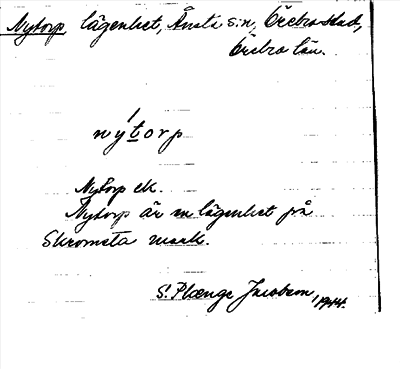 Nytorp, lägenhet, Ånsta s:n, Örebro stad,
Örebro län.
nýtorp
Nytorp ek.
Nytorp är en lägenhet på
Skromsta mark.
S. Plænge Jacobson, 1944.